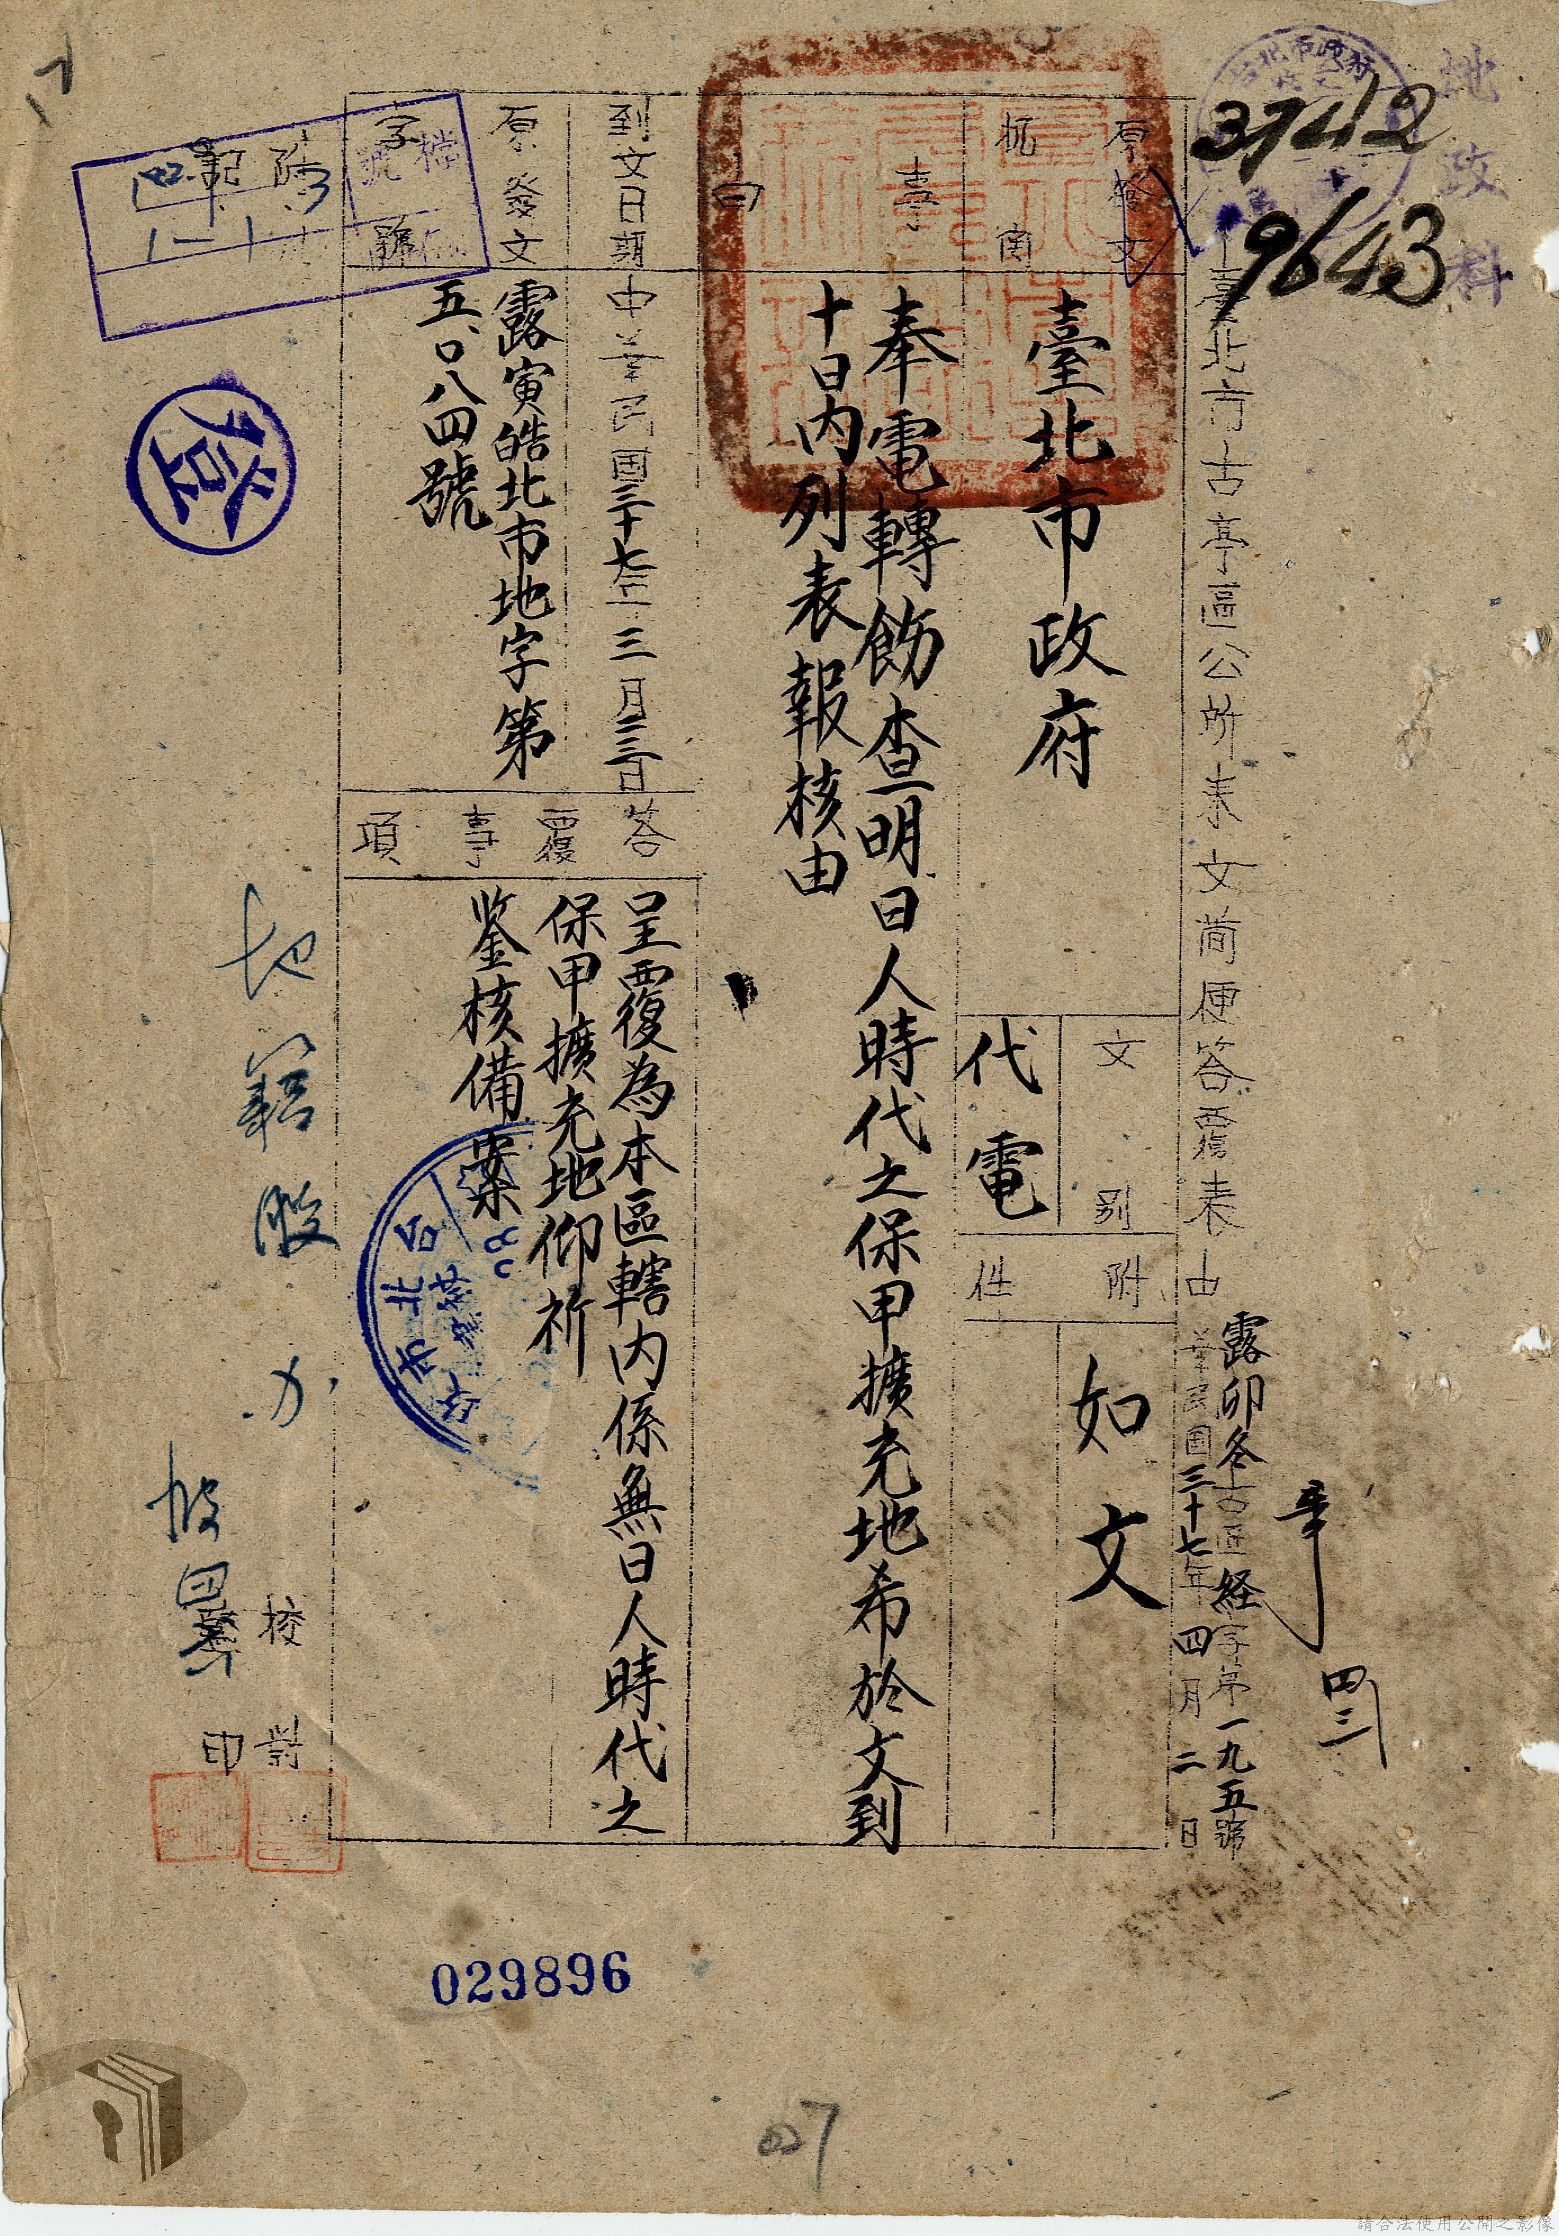 地政科
37412
9643
臺北市古亭區公所來文簡便答覆表
由
露卯冬古區経字第一九五號
華民國三十七年四月二日
四三
原發文
機関
臺北市政府
文別
代電
附件
如文
事由
奉電轉飭查明日人時代之保甲擴充地希於文到
十日內列表報核由
到文日期
中華民國三十七年三月二三日
原發文
字號
露寅皓北市地字第
五〇八四號
答覆事項
呈覆為本區轄內係無日人時代之
保甲擴充地仰祈
鉴核備案
檔號
登
台北市
地籍股
校對
印
029896
027
請合法使用公開之影像